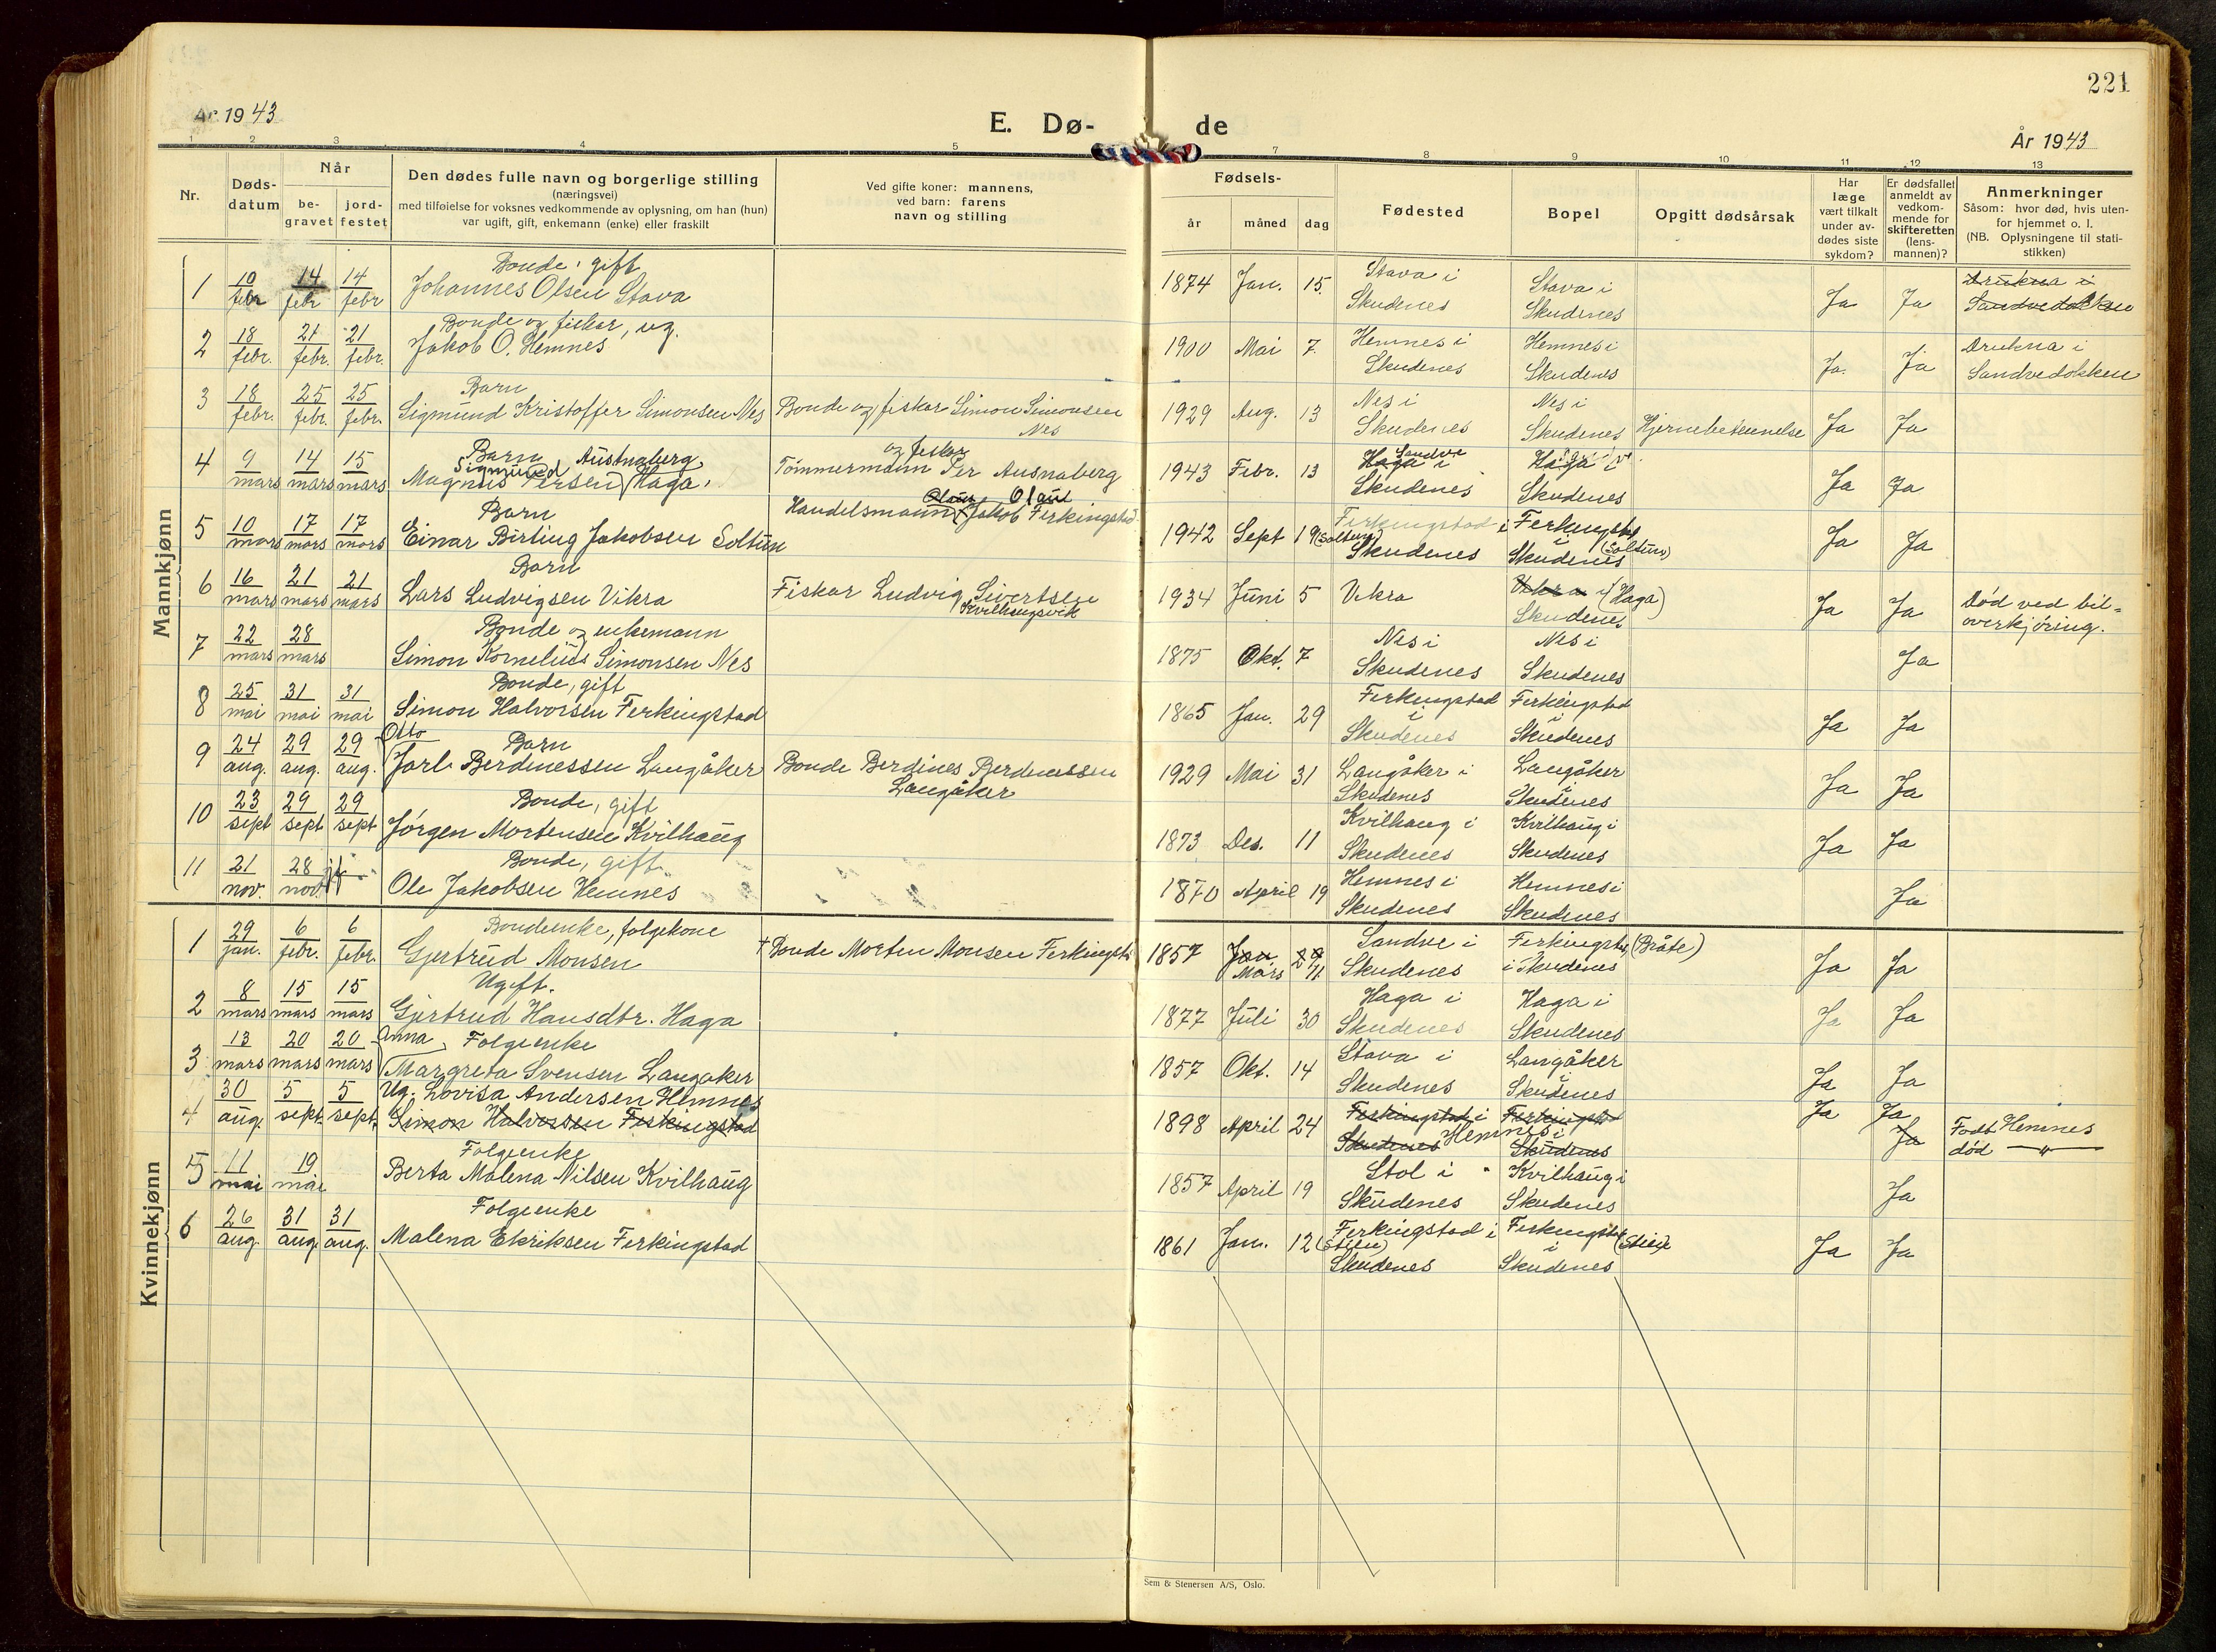 221
År 1943
E. Dø-
de
År 1943
1 2 3 4 5
7 8 9 10 11 12 13
Nr.
Døds-
datum
Når
be-
gravet
jord-
festet
Den dødes fulle navn og borgerlige stilling
(næringsvei)
med tilføielse for voksnes vedkommende av oplysning, om han (hun)
var ugift, gift, enkemann (enke) eller fraskilt
Ved gifte koner: mannens,
ved barn: farens
navn og stilling
Fødsels-
år måned dag
Fødested
Bopel
Opgitt dødsårsak
Har
læge
vært tilkalt
under av-
dødes siste
sykdom?
Er dødsfallet
anmeldt av
vedkom-
mende for
skifteretten
(lens-
mannen)?
Anmerkninger
Såsom: hvor død, hvis uten-
for hjemmet o. l.
(NB. Oplysningene til stati-
stikken)
Mannkjønn
Bonde, gift
1 10 febr 14 febr 14 febr Johannes Olsen Stava 1874 Jan. 15. Stava i Skudenes Stava i Skudenes Ja Ja Drukna i Sandvedokken
Bonde og fiskar, ug.
2 18 febr. 21 febr. 21 febr. Jakob O. Hemnes 1900 Mai 7. Hemnes i Skudenes Hemnes i Skudenes Ja. Ja Drukna i Sandvedokken
Barn
3 18 febr. 25 febr. 25 febr. Sigmund Kristoffer Simonsen Nes Bonde og fiskar Simon Simonsen Nes 1929 Aug. 13 Nes i Skudenes Nes i Skudenes Hjernebetennelse Ja Ja
Barn Austnaberg
4 9 mars 14 mars 15 mars Magnus Sigmund Persen Haga Tømmermann og fiskar Per Ausnaberg 1943 Febr. 13 Haga Sandve i Skudenes Haga i Skudenes Ja Ja
Barn
5 10 mars 17 mars 17 mars Einar Birting Jakobsen Soltun Handelsmann Olaus Olaus Jakob Ferkingstad 1942 Sept 19 Ferkingstad i (Soltun) Skudenes Ferkingstad i (Soltun) Skudenes Ja Ja
Barn
6 16 mars 21 mars 21 mars Lars Ludvigsen Vikra Fiskar Ludvig Sivertsen Kvilhaugsvik 1934 Juni 5 Vikra Vikra i (Haga) Skudenes Ja Ja Død ved bil-
overkjøring.
Bonde og enkemann
7 22 mars 28 mars Simon Kornelius Simonsen Nes 1875 Okt. 7 Nes i Skudenes Nes i Skudenes Ja
Bonde, gift
8 25 mai 31 mai 31 mai Simon Halvorsen Ferkingstad 1865 Jan. 29 Ferkingstad i Skudenes Ferkingstad i Skudenes Ja Ja
Otto Barn
9 24 aug. 29 aug. 29 aug. Jarl Berdinessen Langåker Bonde Berdines Berdinessen Langåker 1929 Mai 31 Langåker i Skudenes Langåker i Skudenes Ja Ja
Bonde, gift
10 23 sept 29 sept 29 sept Jørgen Mortensen Kvilhaug 1873 Des. 11 Kvilhaug i Skudenes Kvilhaug i Skudenes Ja Ja
Bonde, gift
11 21 nov. 28 nov. Ole Jakobsen Hemnes 1870 April 19 Hemnes i Skudenes Hemnes i Skudenes Ja
Kvinnekjønn
Bondeenke, folgekone
1 29 jan. 6 febr. 6 febr. Gjertrud Monsen † Bonde Morten Monsen Ferkingstad 1857 Jan Mars 29 11 Sandve i Skudenes Ferkingstad (Bråte) i Skudenes Ja Ja
Ugift.
2 8 mars 15 mars 15 mars Gjertrud Hansdtr. Haga 1877 Juli 30 Haga i Skudenes Haga i Skudenes Ja Ja
Anna Folgeenke
3 13 mars 20 mars 20 mars Margreta Svensen Langaker 1857 Okt. 14 Stava i Skudenes Langåker i Skudenes Ja Ja
Ug. Lovisa Andersen Hemnes
4 30 aug. 5 sept. 5 sept. Simon Halvorsen Ferkingstad 1898 April 24 Ferkingstad i Skudenes Hemnes i Ferkingstad Skudenes Ja Ja Ja Født Hemnes
død — " —
Folgeenke
5 11 mai 19 mai Berta Malena Nilsen Kvilhaug 1857 April 19 Stol i Skudenes Kvilhaug i Skudenes Ja
Folgeenke
6 26 aug. 31 aug. 31 aug. Malena Ekriksen Ferkingstad 1861 Jan. 12 Ferkingstad i (Stien) Skudenes Ferkingstad (Stien) i Skudenes Ja Ja
Sem & Stenersen A/S, Oslo.